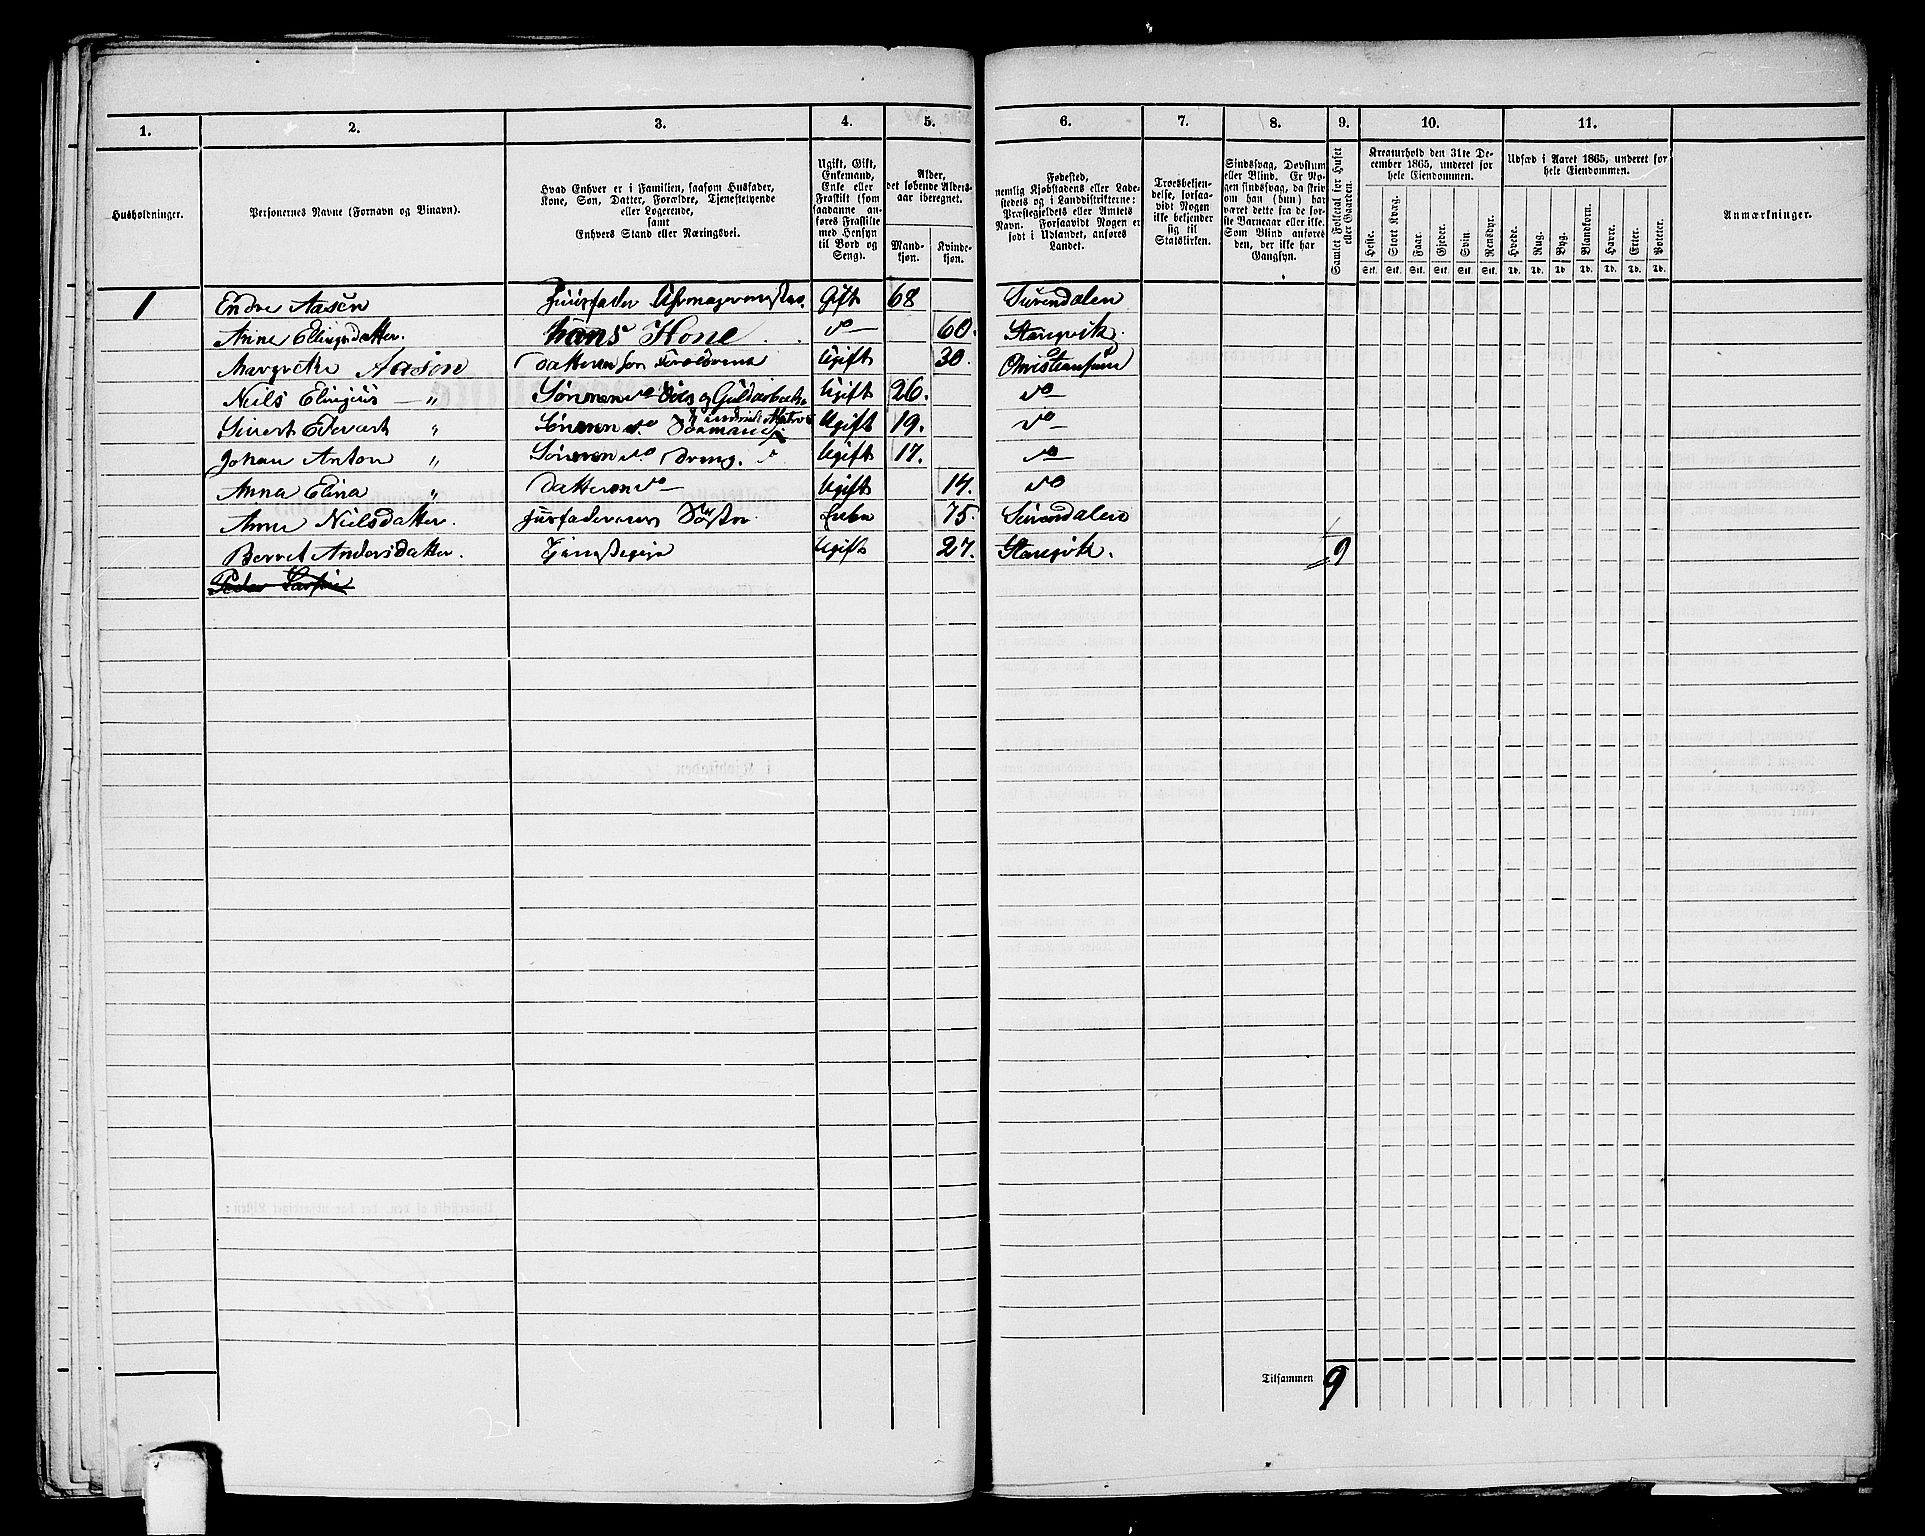 1. 2. 3. 4. 5. 6. 7. 8. 9. 10. 11.
Husholdninger.
Personernes Navne (Fornavn og Tilnavn).
Hvad Enhver er i Familien, saasom Husfader, Kone, Søn, Datter, Forældre, Tjenestetyende eller Logerende, samt Enhvers Stand eller Næringsvei.
Ugift, Gift, Enkemand, Enke eller Fraskilt (som saadanne anføres Fraskilte med Hensyn til Bord og Seng).
Alder, det løbende Alders-aar iberegnet.
Mand-kjøn. Kvinde-kjøn.
Fødested, nemlig Kjøbstadens eller Ladestedets og i Landdistrikterne: Præstegjeldets eller Amtets Navn. Forsaavidt Nogen er født i Udlandet, anføres Landet.
Troesbekjendelse, forsaavidt Nogen ikke bekjender sig til Statskirken.
Sindssvag, Døvstum eller Blind. Er Nogen sindssvag, da skriv om han (hun) har været dette fra de første Barneaar eller ikke. Som Blind anføres den, der ikke har Gangsyn.
Samlet Folketal for Huset eller Gaarden.
Kreaturhold den 31te December 1865, underet for hele Eiendommen.
Heste. Stort Kvæg. Faar. Gjeder. Svin. Rensdyr.
Stk. Stk. Stk. Stk. Stk. Stk.
Udsæd i Aaret 1865, underet for hele Eiendommen.
Hvede. Rug. Byg. Blandkorn. Havre. Erter. Poteter.
Td. Td. Td. Td. Td. Td. Td.
Anmærkninger.
1 Endre Aasen Huusfader Gift 68 Surendalen
Anne Ellingsdatter. hans Kone do 60. Stangvik.
Margrethe Aasen Datteren Ugift 30. Christiansund
Niels Elingius " Sønnen do Ugift 26. do
Sivert Edevart " Sønnen do Ugift 19. do
Johan Anton " Sønnen do Dreng. Ugift 17. do
Anna Elina " Datteren do Ugift 14. do
Anne Nielsdatter. Huusfaderens Søster Enke 75. Surendalen
Berret Andersdatter. Tjenestepige Ugift 27. Stangvik. 9
Peder
Tilsammen 9